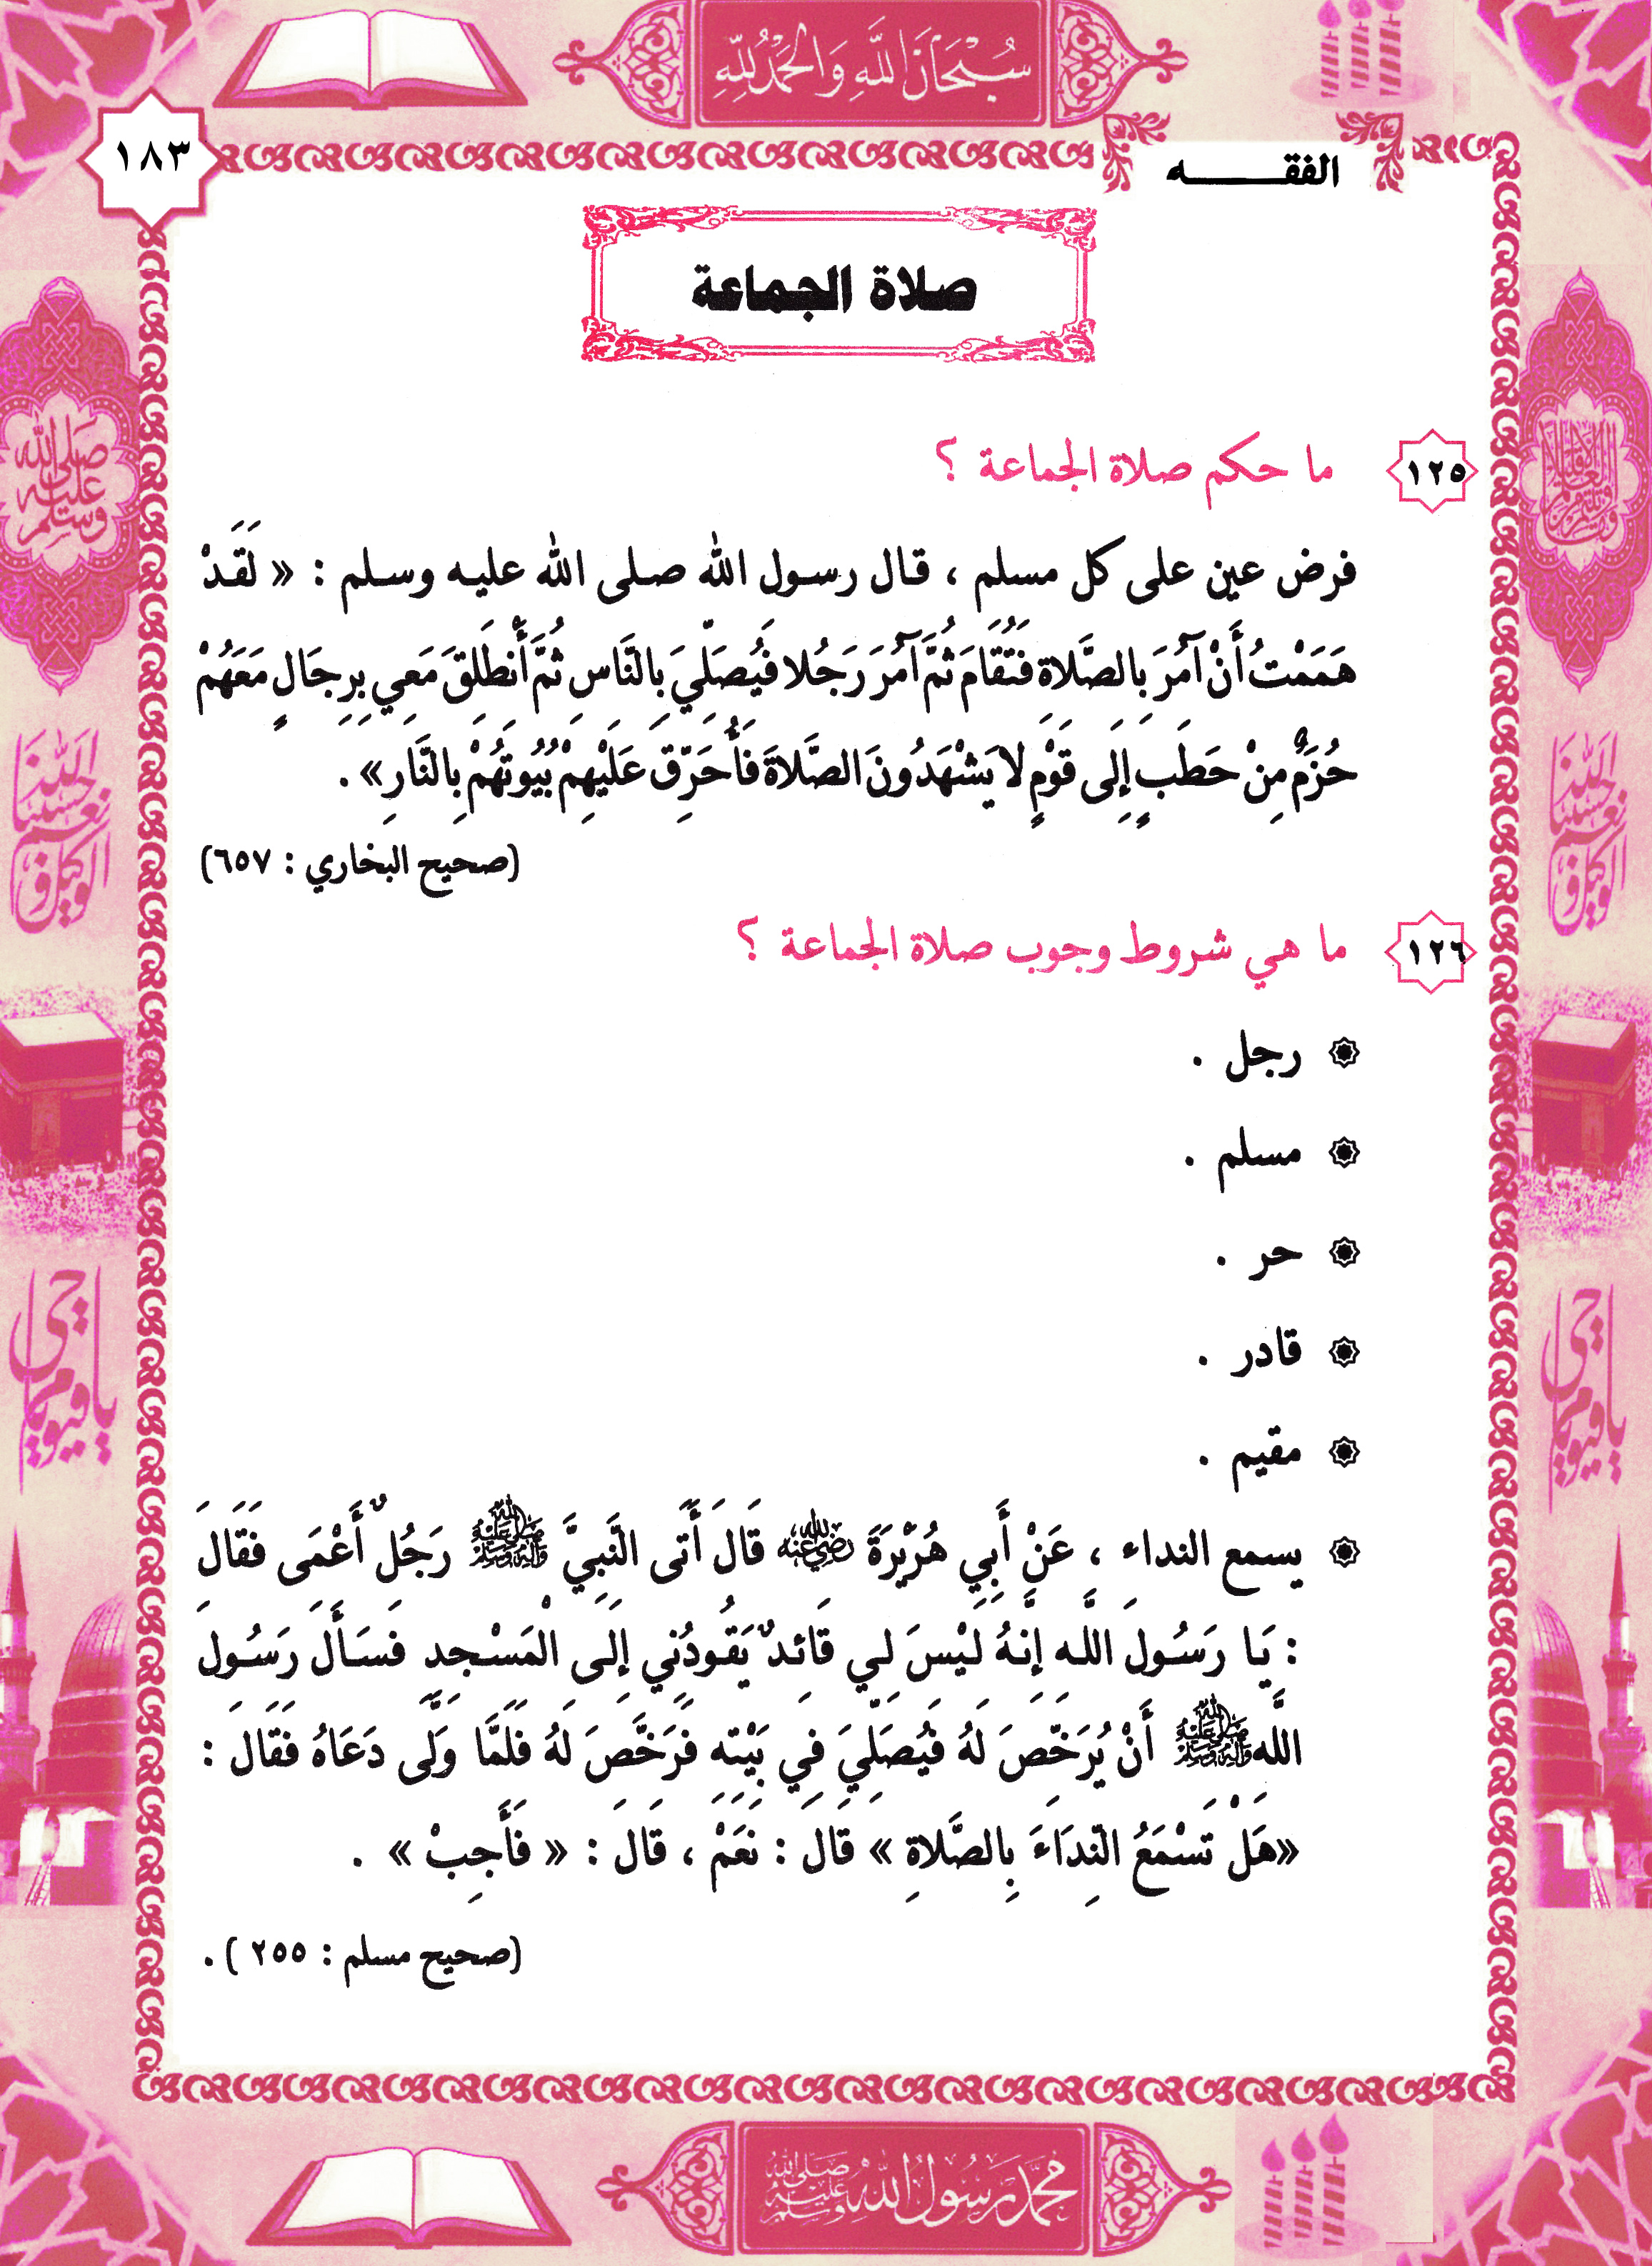 سُبْحَانَ اللَّهِ وَالْحَمْدُ لِلَّهِ
١٨٣
الفقـــــــه
صلاة الجماعة
١٢٥ ما حكم صلاة الجماعة ؟
فرض عين على كل مسلم ، قال رسول الله صلى الله عليه وسلم : « لَقَدْ
هَمَمْتُ أَنْ آمُرَ بِالصَّلَاةِ فَتُقَامَ ثُمَّ آمُرَ رَجُلا فَيُصَلِّيَ بِالنَّاسِ ثُمَّ أَنْطَلِقَ مَعِي بِرِجَالٍ مَعَهُمْ
حُزَمٌ مِنْ حَطَبٍ إِلَى قَوْمٍ لَا يَشْهَدُونَ الصَّلَاةَ فَأُحَرِّقَ عَلَيْهِمْ بُيُوتَهُمْ بِالنَّارِ» .
(صحيح البخاري : ٦٥٧)
١٢٦ ما هي شروط وجوب صلاة الجماعة ؟
رجل .
مسلم .
حر .
قادر .
مقيم .
يسمع النداء ، عَنْ أَبِي هُرَيْرَةَ رضي الله عنه قَالَ أَتَى النَّبِيَّ ﷺ رَجُلٌ أَعْمَى فَقَالَ
: يَا رَسُولَ اللَّه إِنَّهُ لَيْسَ لِي قَائِدٌ يَقُودُنِي إِلَى الْمَسْجِدِ فَسَأَلَ رَسُولَ
اللَّهِ ﷺ أَنْ يُرَخِّصَ لَهُ فَيُصَلِّيَ فِي بَيْتِهِ فَرَخَّصَ لَهُ فَلَمَّا وَلَّى دَعَاهُ فَقَالَ :
«هَلْ تَسْمَعُ النِّدَاءَ بِالصَّلَاةِ » قَالَ : نَعَمْ ، قَالَ : « فَأَجِبْ » .
(صحيح مسلم : ٢٥٥ ) .
صلى الله عليه وسلم
حسبنا الله ونعم الوكيل
يا حي يا قيوم
حسبنا الله ونعم الوكيل
يا حي يا قيوم
محمد رسول الله صلى الله عليه وسلم